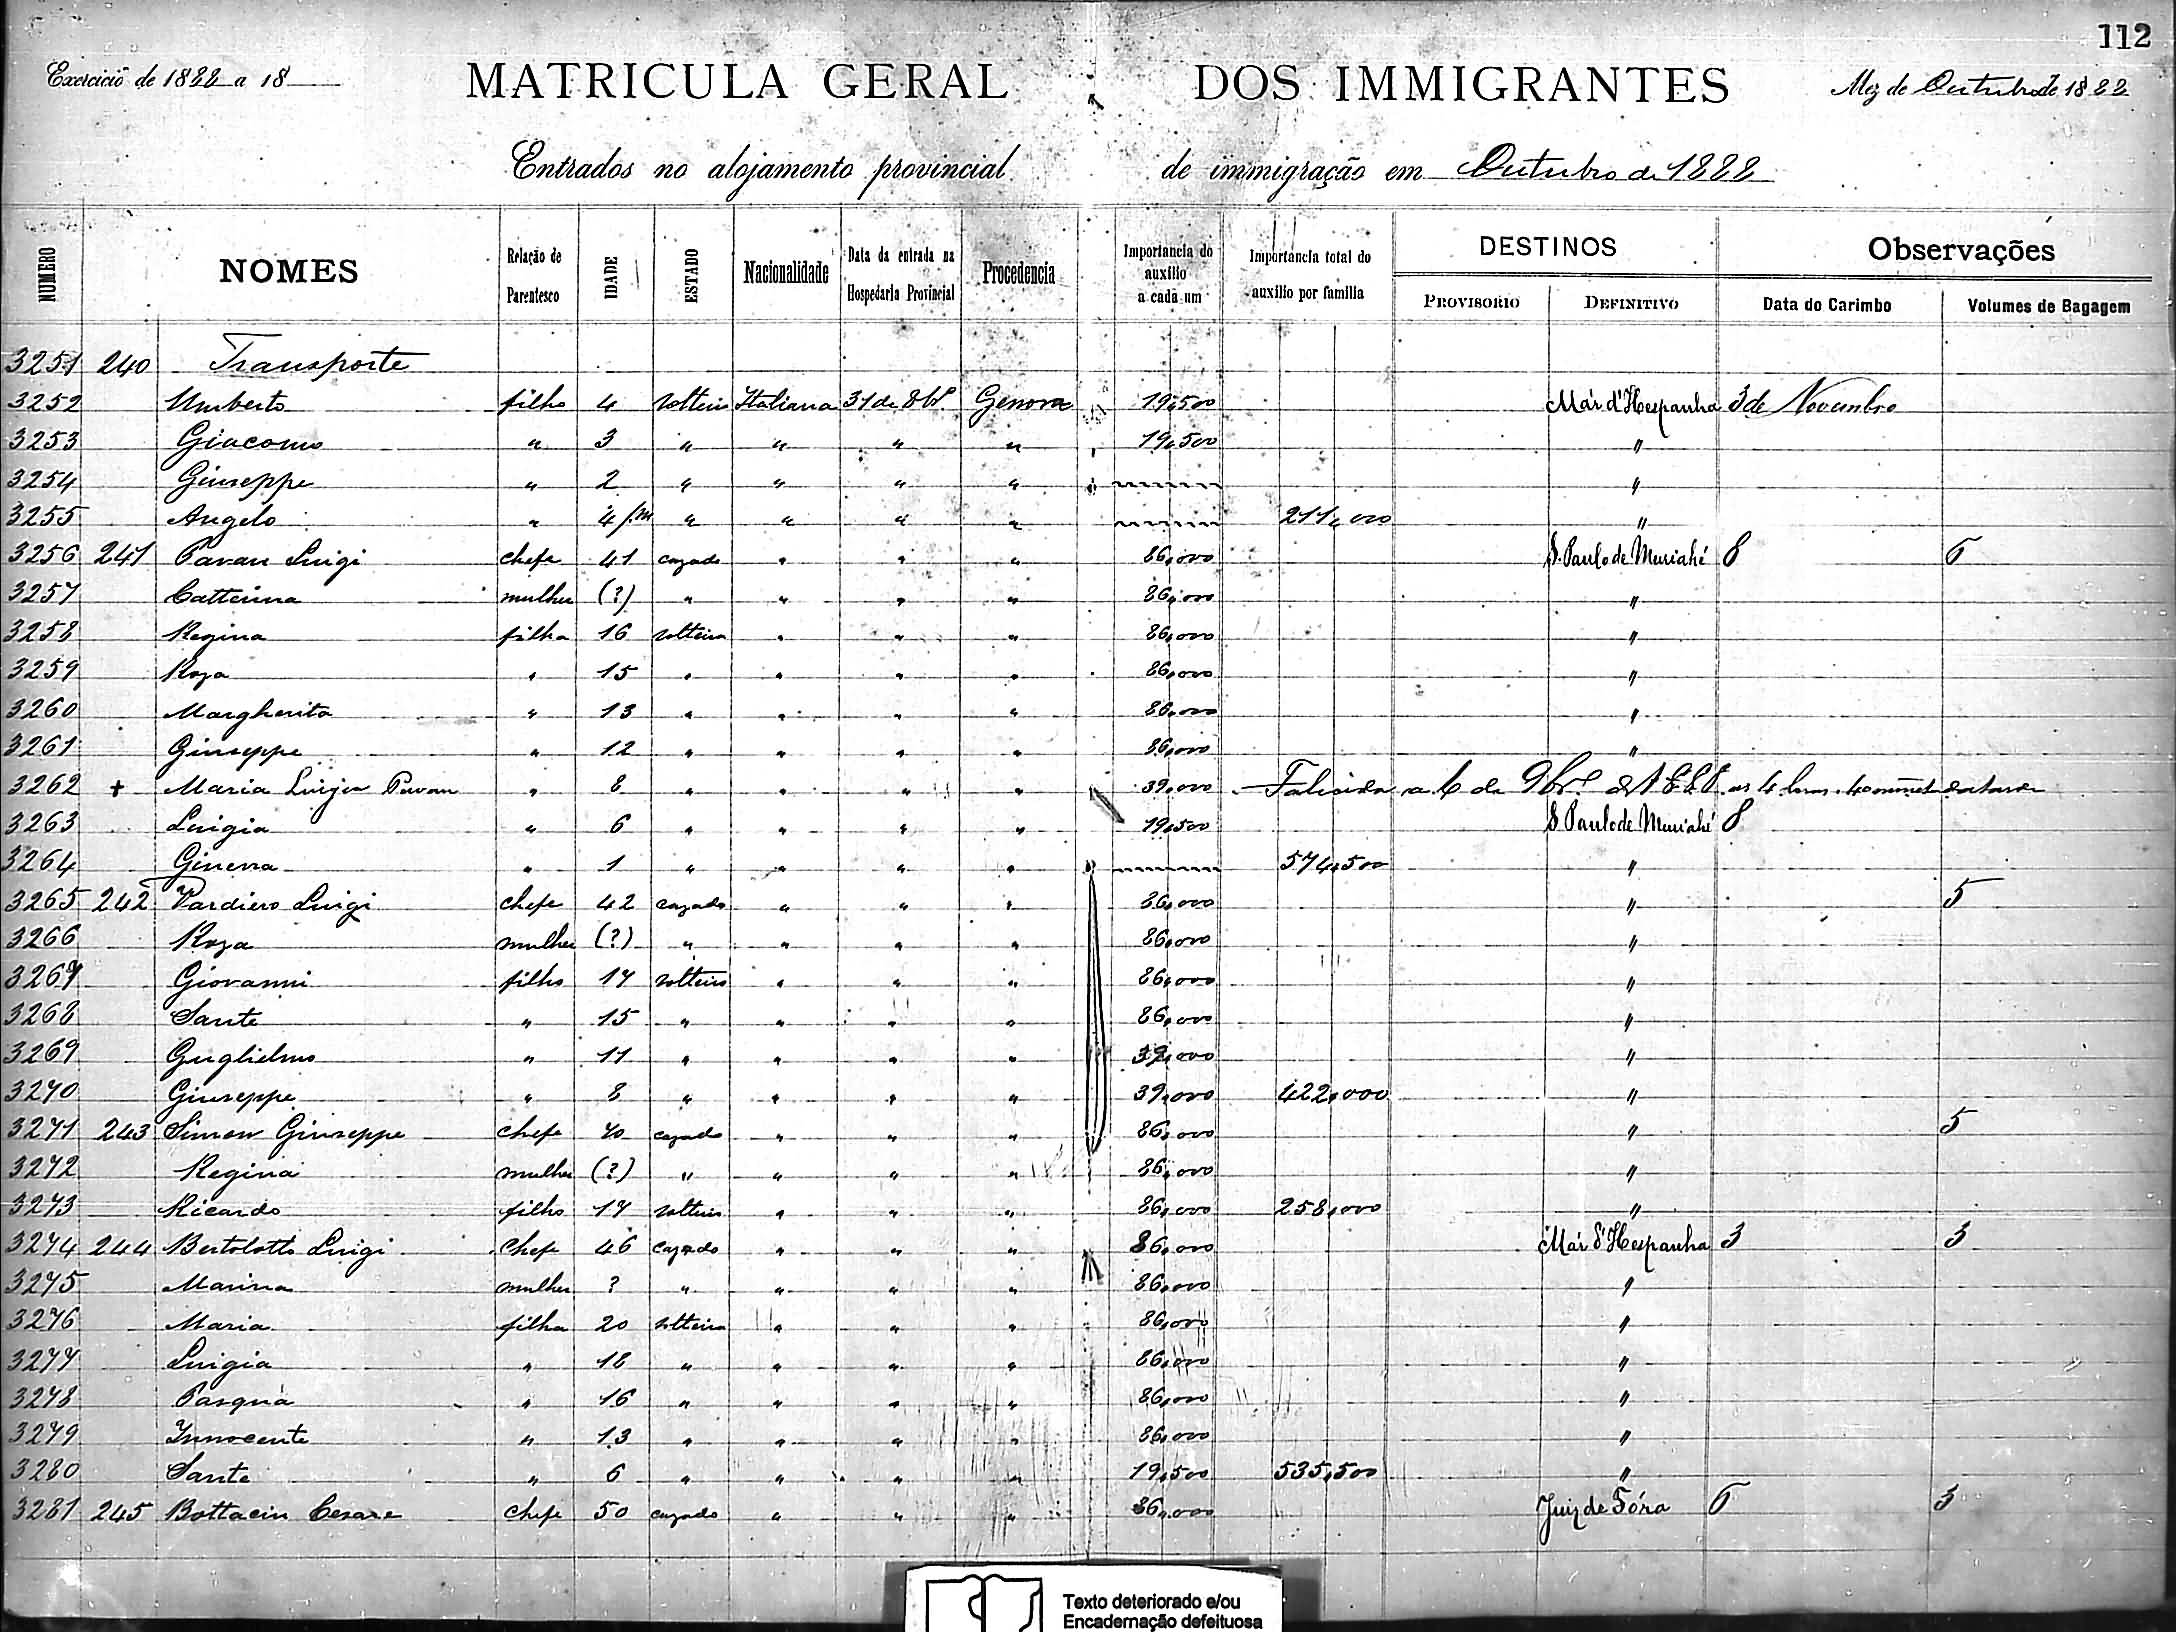 112
Exercicio de 1888 a 18
MATRICULA GERAL DOS IMMIGRANTES
Mez de Outubro de 1888
Entrados no alojamento provincial de immigração em Outubro de 1888
NUMERO NOMES Relação de Parentesco IDADE ESTADO Nacionalidade Data da entrada na Hospedaria Provincial Procedencia Importancia do auxilio a cada um Importancia total do auxilio por familia DESTINOS PROVISORIO DEFINITIVO Observações Data do Carimbo Volumes de Bagagem
3251 240 Transporte
3252 Umberto filho 4 solteiro Italiana 31 de 8br. Genova 19,500 Mar d'Hespanha 3 de Novembro
3253 Giacomo " 3 " " " " 19,500 "
3254 Giuseppe " 2 " " " " "
3255 Angelo " 4/m " " " " 211,000 "
3256 241 Pavan Luigi chefe 41 cazado " " " 86,000 S. Paulo de Muriahé 8 6
3257 Catterina mulher (?) " " " " 86,000 "
3258 Regina filha 16 solteira " " " 86,000 "
3259 Roza " 15 " " " " 86,000 "
3260 Margherita " 13 " " " " 86,000 "
3261 Giuseppe " 12 " " " " 86,000 "
3262 + Maria Luigia Pavan " 8 " " " " 39,000 Falicida a 6 de 9br. de 1888 as 4 horas da tarde
3263 Luigia " 6 " " " " 19,500 S. Paulo de Muriahé 8
3264 Ginevra " 1 " " " " 574,500 "
3265 242 Vardiero Luigi chefe 42 cazado " " " 86,000 " 5
3266 Roza mulher (?) " " " " 86,000 "
3267 Giovanni filho 17 solteiro " " " 86,000 "
3268 Sante " 15 " " " " 86,000 "
3269 Guglielmo " 11 " " " " 39,000 "
3270 Giuseppe " 8 " " " " 39,000 422,000 "
3271 243 Simon Giuseppe chefe 40 cazado " " " 86,000 " 5
3272 Regina mulher (?) " " " " 86,000 "
3273 Ricardo filho 17 solteiro " " " 86,000 258,000 "
3274 244 Bertolotto Luigi chefe 46 cazado " " " 86,000 Mar d'Hespanha 3 3
3275 Marina mulher ? " " " " 86,000 "
3276 Maria filha 20 solteira " " " 86,000 "
3277 Luigia " 18 " " " " 86,000 "
3278 Pasqua " 16 " " " " 86,000 "
3279 Innocente " 13 " " " " 86,000 "
3280 Sante " 6 " " " " 19,500 535,500 "
3281 245 Bottacin Cesare chefe 50 cazado " " " 86,000 Juiz de Fóra 6 3
Texto deteriorado e/ou
Encadernação defeituosa